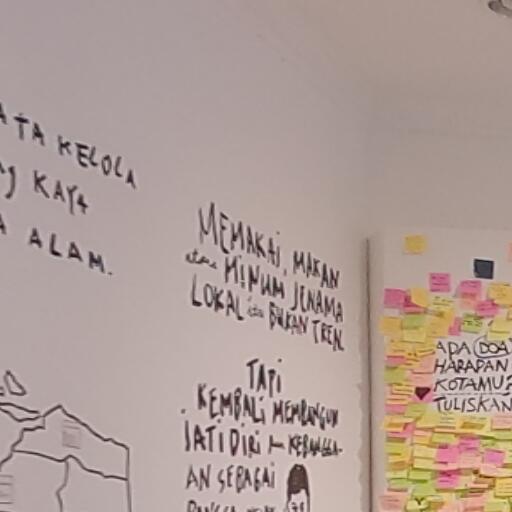 ATA KELOLA
KAYA
ALAM.
MEMAKAI, MAKAN
atau MINUM JENAMA
LOKAL itu BUKAN TREN.
TAPI
KEMBALI MEMBANGUN
JATI DIRI KEBANGGA-
AN SEBAGAI
ADA DOA
HARAPAN
KOTAMU?
TULISKAN